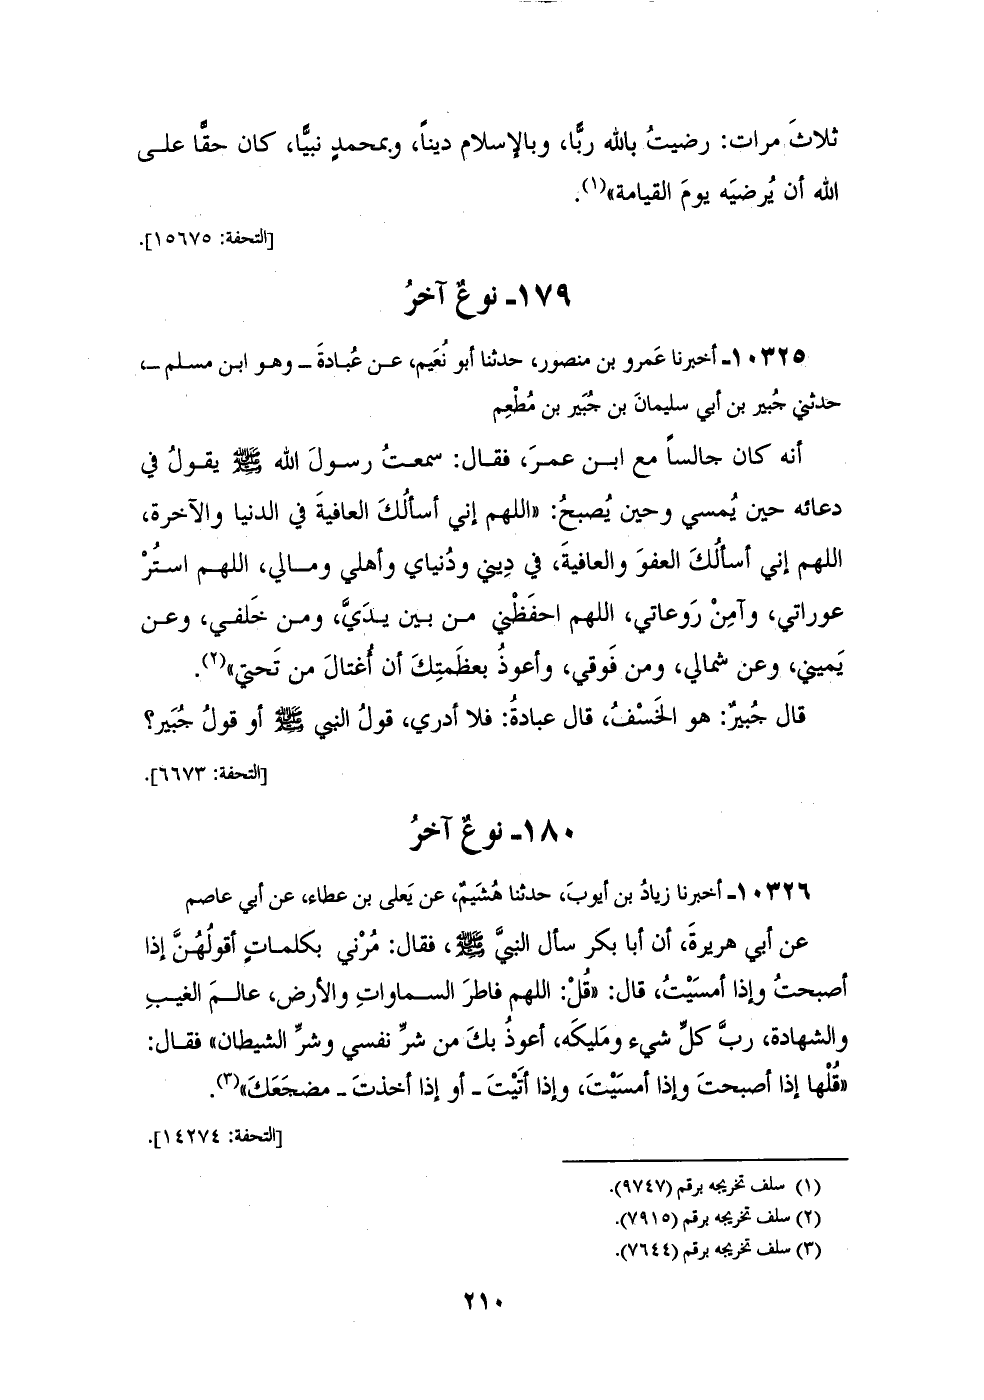 ثلاثَ مرات: رضيتُ بالله ربًّا، وبالإسلام ديناً، وبمحمدٍ نبيًّا، كان حقًّا على
الله أن يُرضيَه يومَ القيامة»(١).
[التحفة: ١٥٦٧٥].
١٧٩ـ نوعٌ آخرُ
١٠٣٢٥ـ أخبرنا عَمرو بن منصور، حدثنا أبو نُعَيم، عـن عُبـادةَ ـ وهـو ابـن مسـلم ـ،
حدثني جُبير بن أبي سليمانَ بن جُبَير بن مُطْعِم
أنه كان جالساً مع ابـن عمـرَ، فقـال: سمعـتُ رسـولَ الله ﷺ يقـولُ في
دعائه حين يُمسي وحين يُصبحُ: «اللهم إني أسألُكَ العافيةَ في الدنيا والآخرة،
اللهم إني أسألُكَ العفوَ والعافيةَ، في دِيني ودُنياي وأهلي ومـالي، اللهـم استُرْ
عوراتي، وآمِنْ رَوعاتي، اللهم احفَظْني مـن بـين يـدَيَّ، ومـن خَلفـي، وعـن
يَميني، وعن شمالي، ومن فَوقي، وأعوذُ بعظَمتِكَ أن أُغتالَ من تَحتي»(٢).
قال جُبيرٌ: هو الخَسْفُ، قال عبادةُ: فلا أدري، قولُ النبي ﷺ أو قولُ جُبَير؟
[التحفة: ٦٦٧٣].
١٨٠ـ نوعٌ آخرُ
١٠٣٢٦ـ أخبرنا زيادُ بن أيوبَ، حدثنا هُشَيمٌ، عن يَعلى بن عطاء، عن أبي عاصم
عن أبي هريرةَ، أن أبا بكر سأل النبيَّ ﷺ، فقال: مُرْني بكلماتٍ أقولُهُنَّ إذا
أصبحتُ وإذا أمسَيْتُ، قال: «قُلْ: اللهم فاطرَ السـماواتِ والأرض، عالـمَ الغيبِ
والشهادة، ربَّ كلِّ شيء ومَليكَه، أعوذُ بكَ من شرِّ نفسي وشرِّ الشيطان» فقـال:
«قُلْها إذا أصبحتَ وإذا أمسَيْتَ، وإذا أتَيْتَ ـ أو إذا أخذتَ ـ مضجَعَكَ»(٣).
[التحفة: ١٤٢٧٤].
(١) سلف تخريجه برقم (٩٧٤٧).
(٢) سلف تخريجه برقم (٧٩١٥).
(٣) سلف تخريجه برقم (٧٦٤٤).
٢١٠